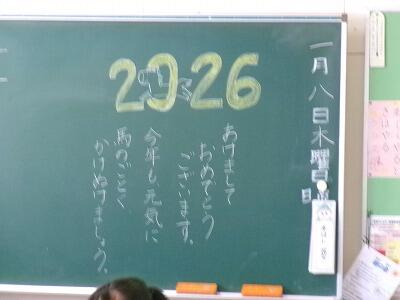 一月八日木曜日
2026
あけまして
おめでとう
ございます。
今年も、元気に
馬のごとく
かけぬけましょう。